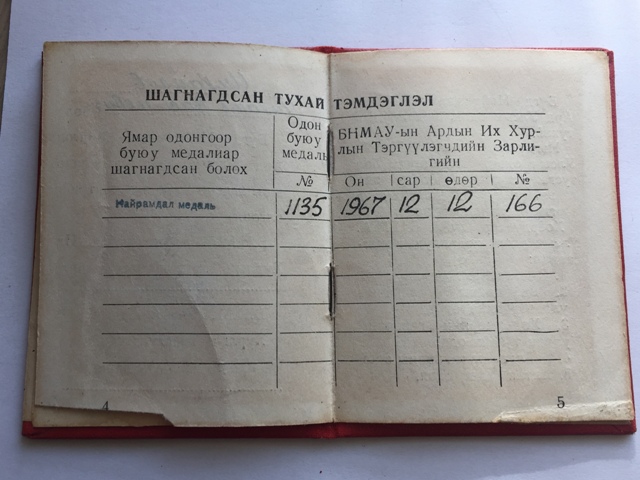 ШАГНАГДСАН ТУХАЙ ТЭМДЭГЛЭЛ
Ямар одонгоор
буюу медалиар
шагнагдсан болох
Одон
буюу
медаль
№
БНМАУ-ын Ардын Их Хур-
лын Тэргүүлэгчдийн Зарли-
гийн
Он сар өдөр №
Найрамдал медаль 1135 1967 12 12 166
4
5